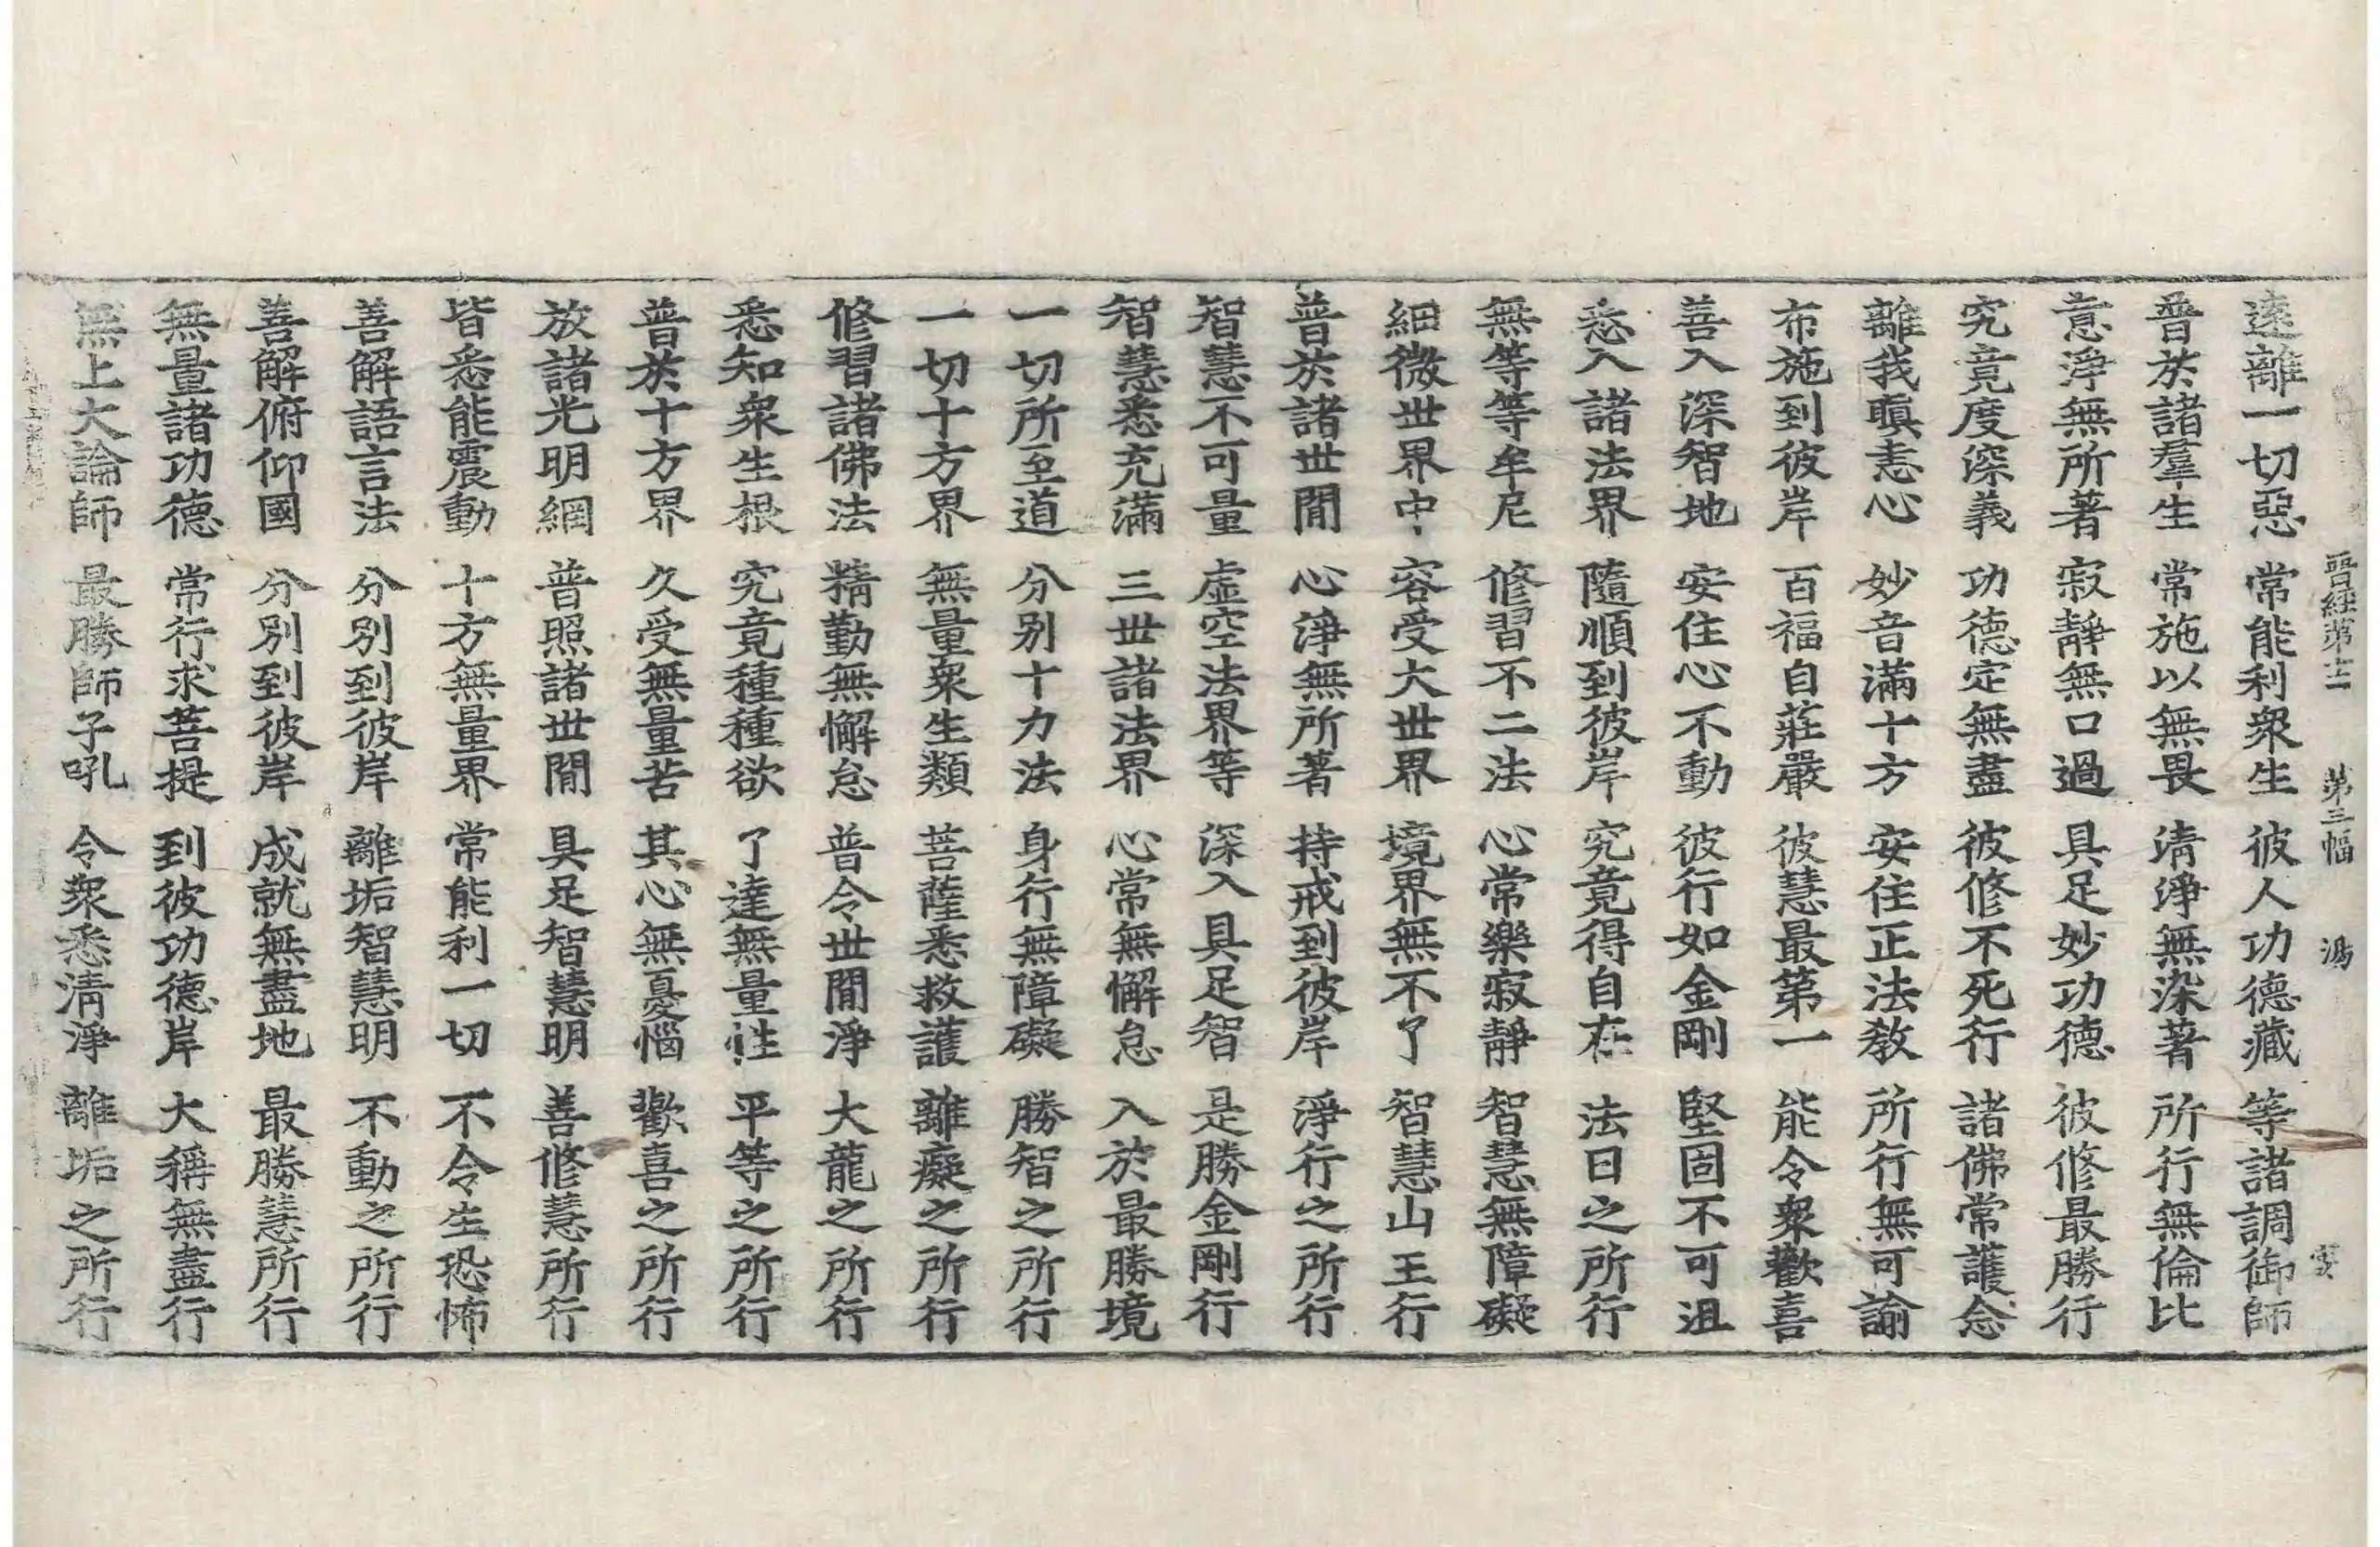 晋經第十二 第三幅 湯
遠離一切惡 常能利衆生 彼人功德藏 等諸調御師
普於諸羣生 常施以無畏 清淨無染著 所行無倫比
意淨無所著 寂靜無口過 具足妙功德 彼修最勝行
究竟度深義 功德定無盡 彼修不死行 諸佛常護念
離我瞋恚心 妙音滿十方 安住正法教 所行無可諭
布施到彼岸 百福自莊嚴 彼慧最第一 能令衆歡喜
善入深智地 安住心不動 彼行如金剛 堅固不可沮
悉入諸法界 隨順到彼岸 究竟得自在 法日之所行
無等等牟尼 修習不二法 心常樂寂靜 智慧無障礙
細微世界中 容受大世界 境界無不了 智慧山王行
普於諸世間 心淨無所著 持戒到彼岸 淨行之所行
智慧不可量 虛空法界等 深入具足智 是勝金剛行
智慧悉充滿 三世諸法界 心常無懈怠 入於最勝境
一切所至道 分別十力法 身行無障礙 勝智之所行
一切十方界 無量衆生類 菩薩悉救護 離癡之所行
修習諸佛法 精勤無懈怠 普令世間淨 大龍之所行
悉知衆生根 究竟種種欲 了達無量性 平等之所行
普於十方界 久受無量苦 其心無憂惱 歡喜之所行
放諸光明網 普照諸世間 具足智慧明 善修慧所行
皆悉能震動 十方無量界 常能利一切 不令生恐怖
善解語言法 分別到彼岸 離垢智慧明 不動之所行
善解俯仰國 分別到彼岸 成就無盡地 最勝慧所行
無量諸功德 常行求菩提 到彼功德岸 大稱無盡行
無上大論師 最勝師子吼 令衆悉清淨 離垢之所行